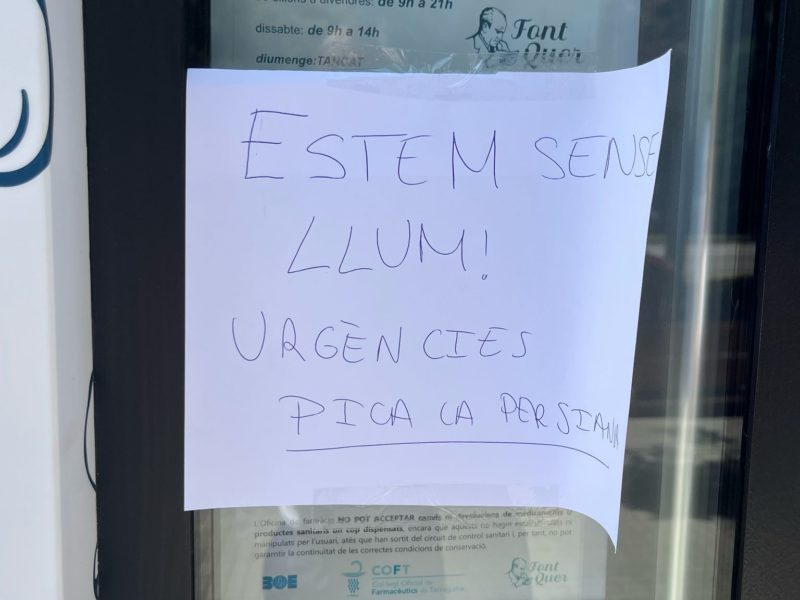 de 9h a 21h
dissabte: de 9h a 14h
diumenge: TANCAT
Font
Quer
ESTEM SENSE
LLUM!
URGÈNCIES
PICA LA PERSIANA
L'Oficina de farmàcia NO POT ACCEPTAR canvis ni devolucions de medicaments o
productes sanitaris un cop dispensats, encara que aquests no hagin estat ni
manipulats per l'usuari, atès que han sortit del circuit de control sanitari i, per tant, no pot
garantir la continuïtat de les correctes condicions de conservació.
BOE
COFT
Col·legi Oficial de
Farmacèutics de Tarragona
Font
Quer